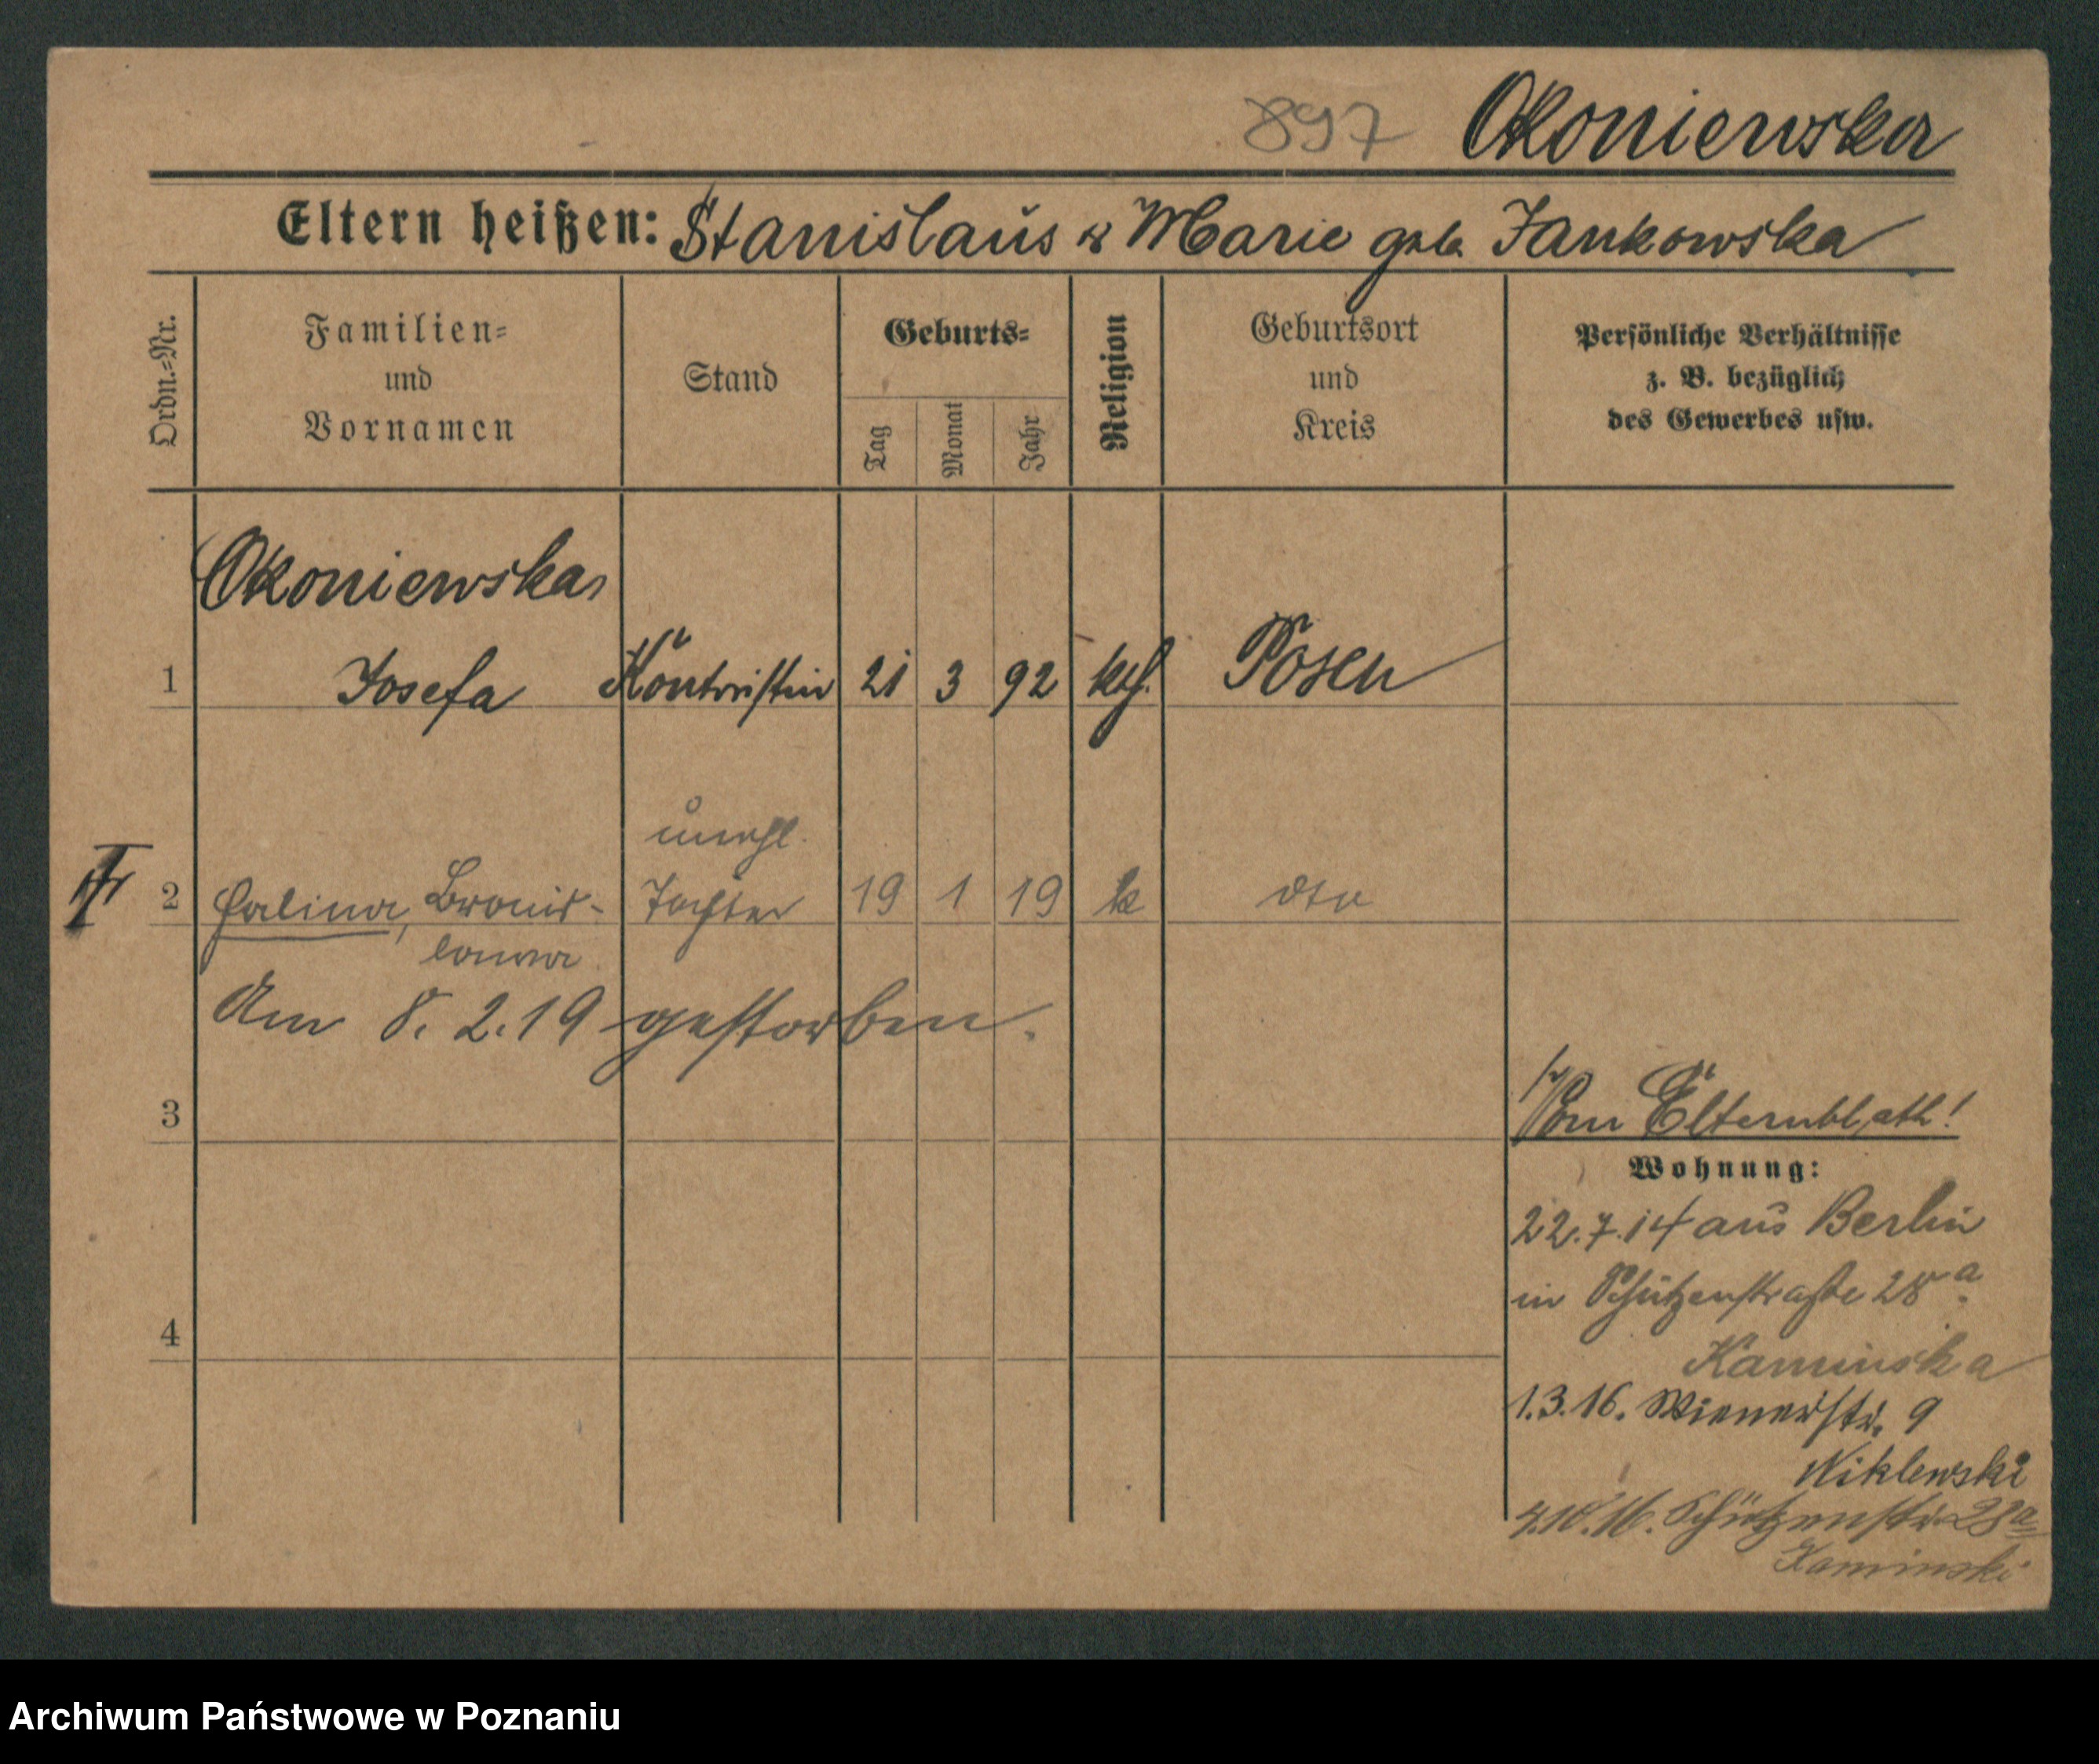 897 Okoniewska
Eltern heißen: Stanislaus & Marie geb. Jankowska
Ordn.=Nr.
Familien=
und
Vornamen
Stand
Geburts=
Tag
Monat
Jahr
Religion
Geburtsort
und
Kreis
Persönliche Verhältnisse
z. B. bezüglich
des Gewerbes usw.
Okoniewska
1 Josefa Kontoristin 21 3 92 kath. Posen
unehl.
2 Halina, Bronis- Tochter 19 1 19 k dto
lawa
Am 8. 2. 19 gestorben.
3
Vom Elternbl. !
Wohnung:
22.7.14 aus Berlin
in Schützenstraße 28a.
Kaminska
4
1.3.16. Wienerstr. 9
Niklewski
4.10.16. Schützenstr. 28a
Kaminski
Archiwum Państwowe w Poznaniu